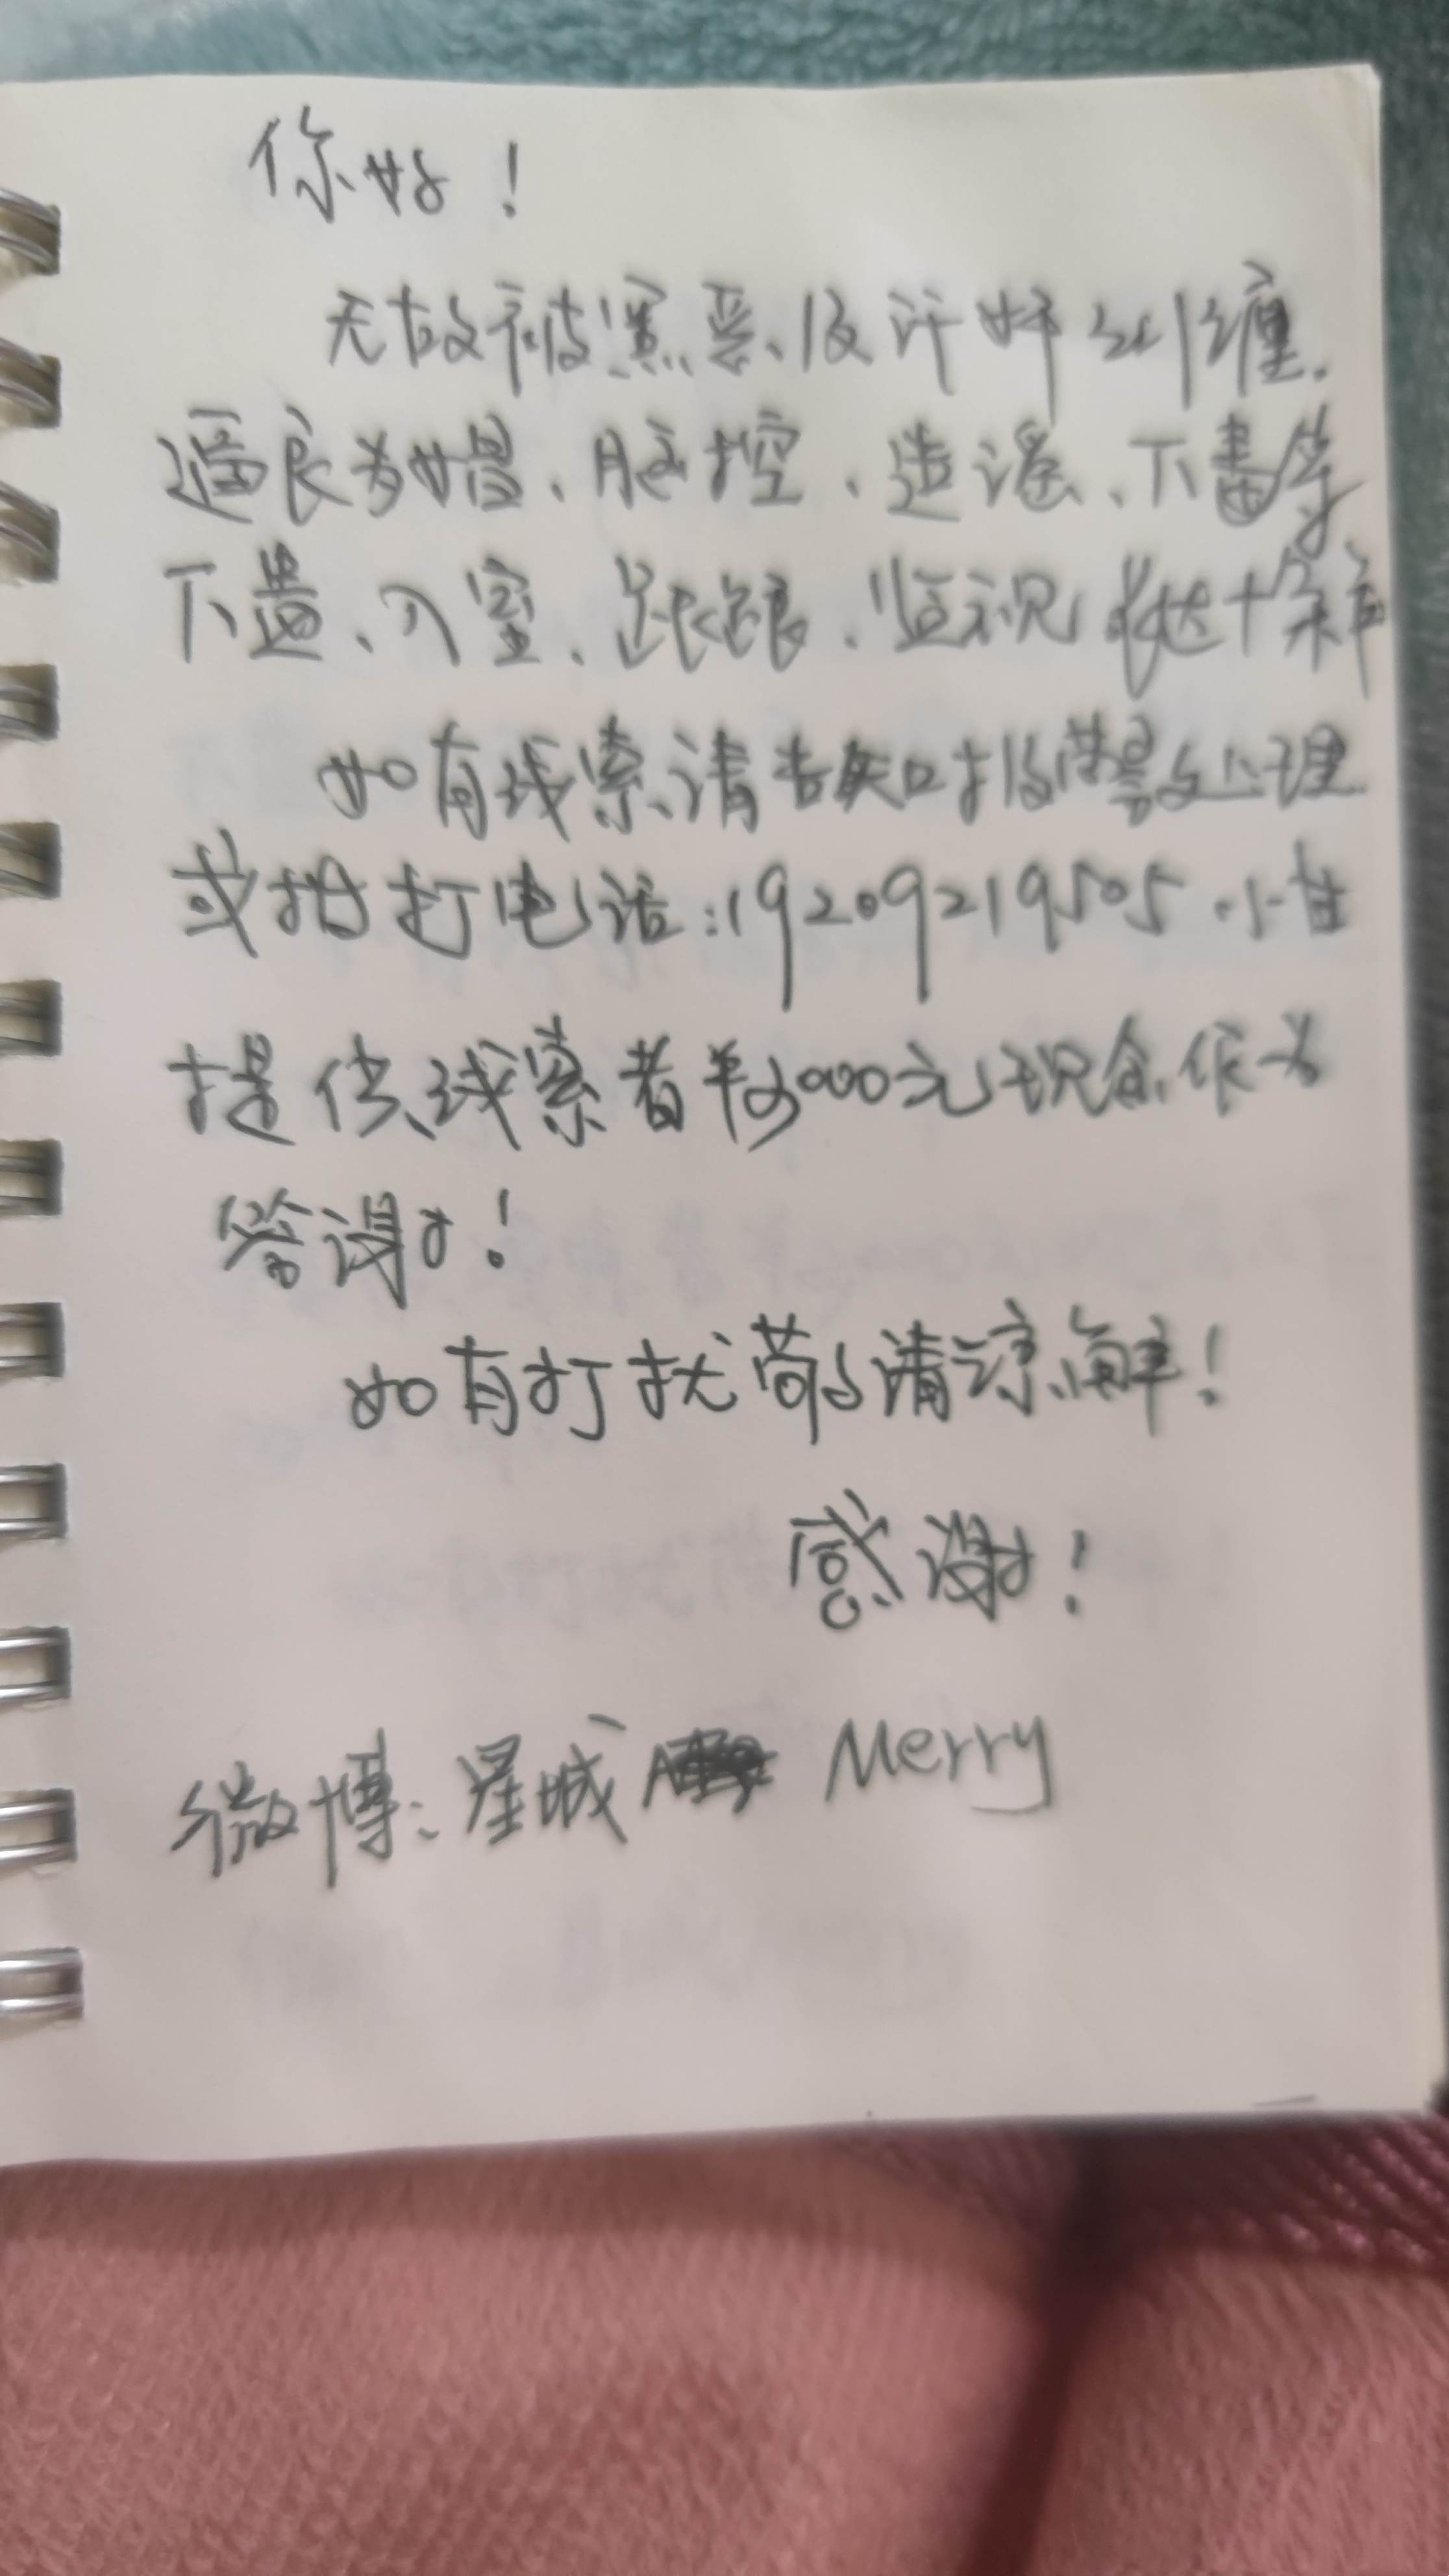 你好！
无故被黑恶及许奸纠缠.
逼良为娼、脑控、造谣、下毒等
下蛊、入室、跟踪、监视长达十余年
如有线索请告知报警处理
或拨打电话:19209219505 小甘
提供线索者 000元现金作为
答谢！
如有打扰敬请谅解！
感谢！
微博:星城 Merry